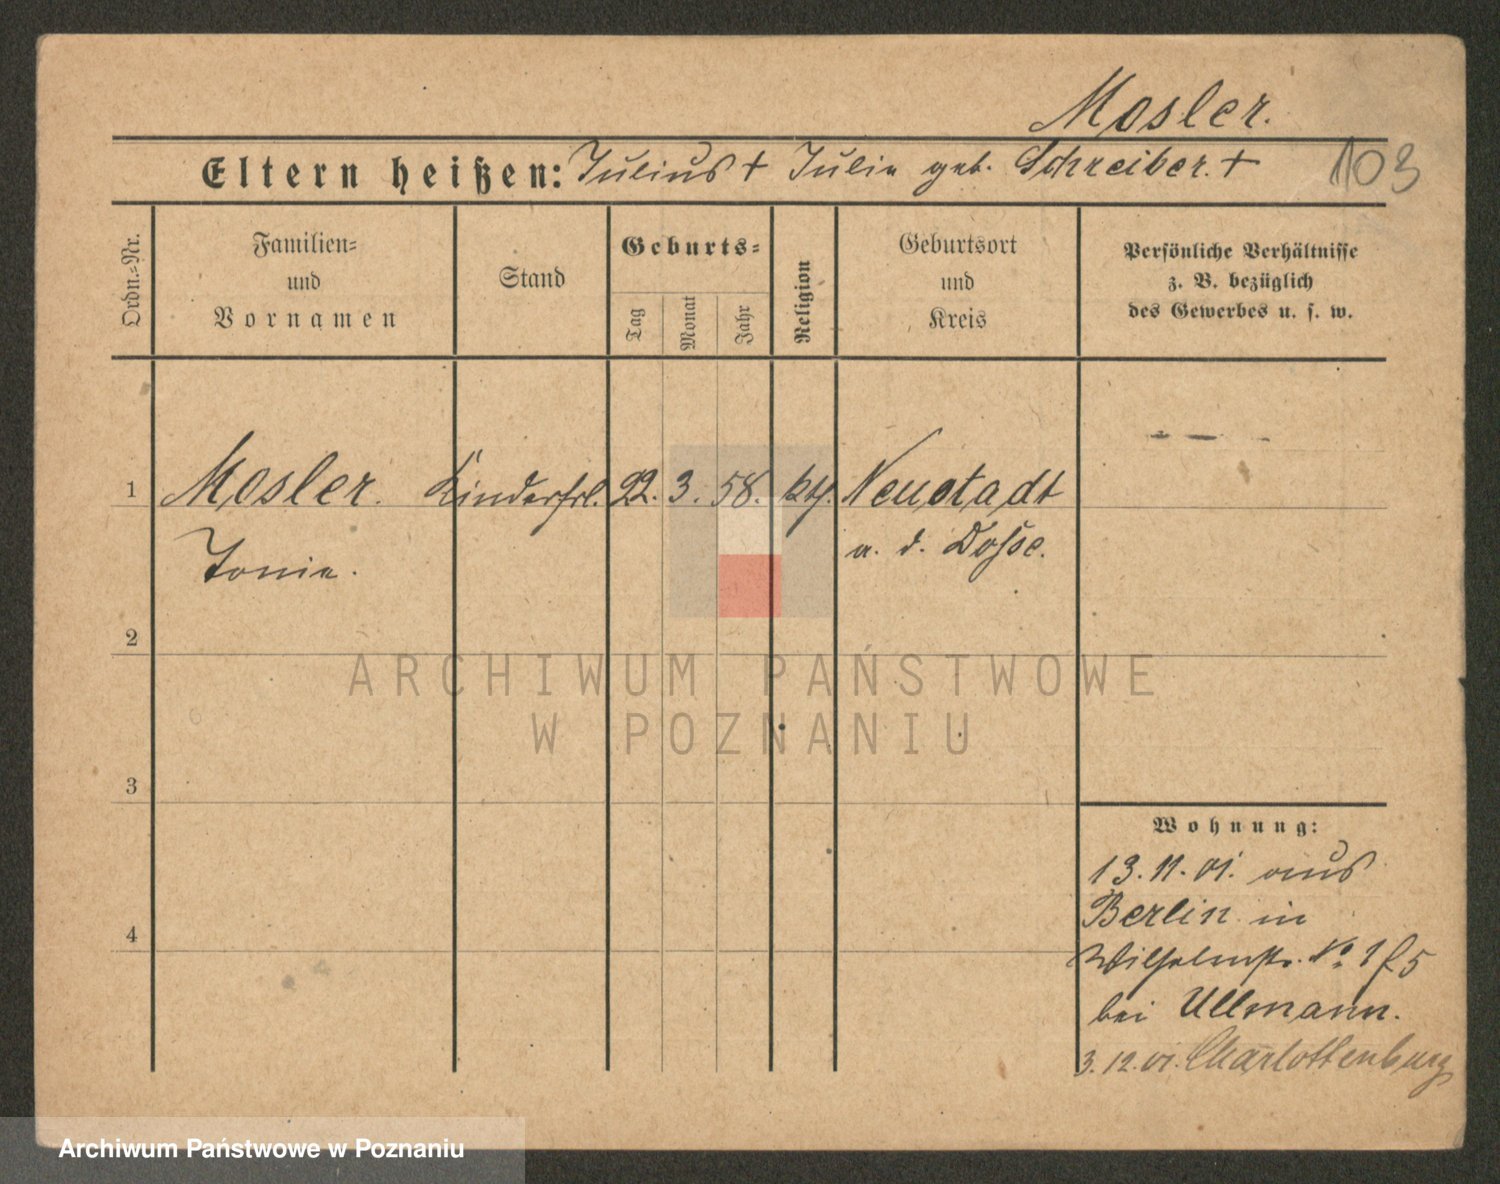 Mosler.
Eltern heißen: Julius + Julie geb. Schreiber. +
103
Ordn.=Nr.
Familien=
und
Vornamen
Stand
Geburts=
Tag
Monat
Jahr
Religion
Geburtsort
und
Kreis
Persönliche Verhältnisse
z. B. bezüglich
des Gewerbes u. s. w.
1 Mosler. Kinderfrl. 22. 3. 58. kth. Neustadt
a. d. Dosse.
Tonie.
2
3
4
Wohnung:
13.11.01. aus
Berlin in
Wilhelmstr. No 1
bei Ullmann.
3.12.01. Charlottenburg
ARCHIWUM PAŃSTWOWE
W POZNANIU
Archiwum Państwowe w Poznaniu